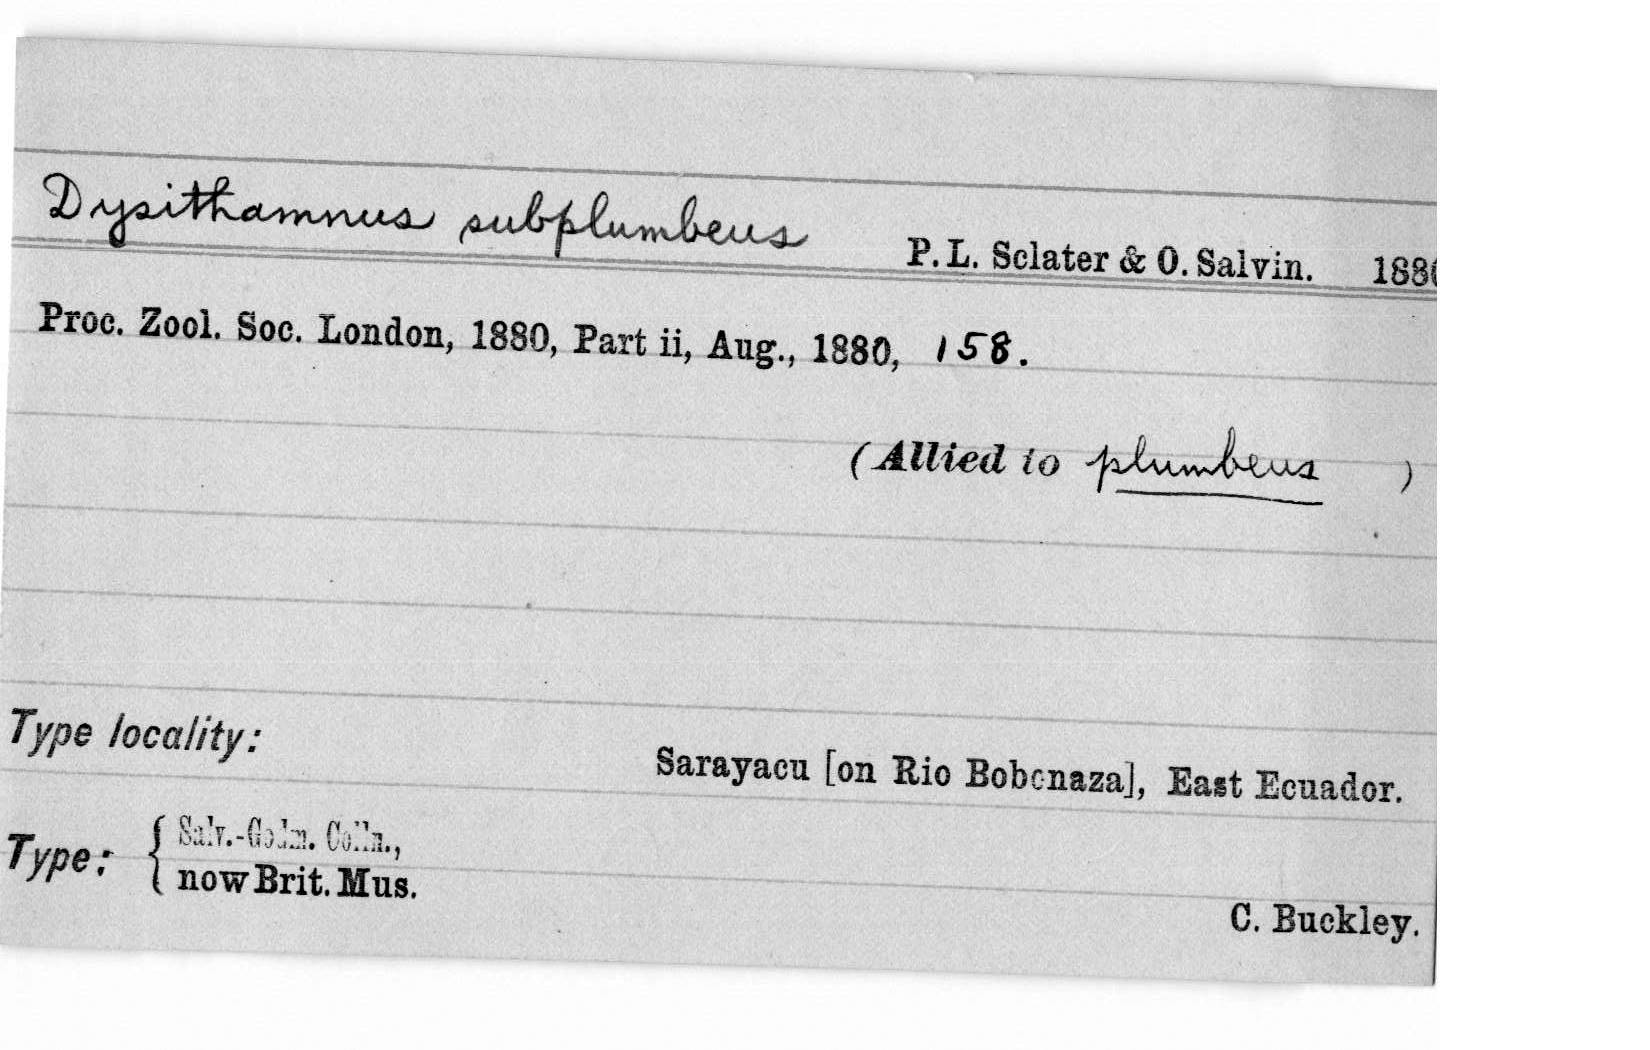 Dysithamnus subplumbeus P. L. Sclater & O. Salvin. 1880
Proc. Zool. Soc. London, 1880, Part ii, Aug., 1880, 158.
(Allied to plumbeus )
Type locality:
Sarayacu [on Rio Bobonaza], East Ecuador.
Type: { Salv.-Godm. Colln.,
now Brit. Mus.
C. Buckley.